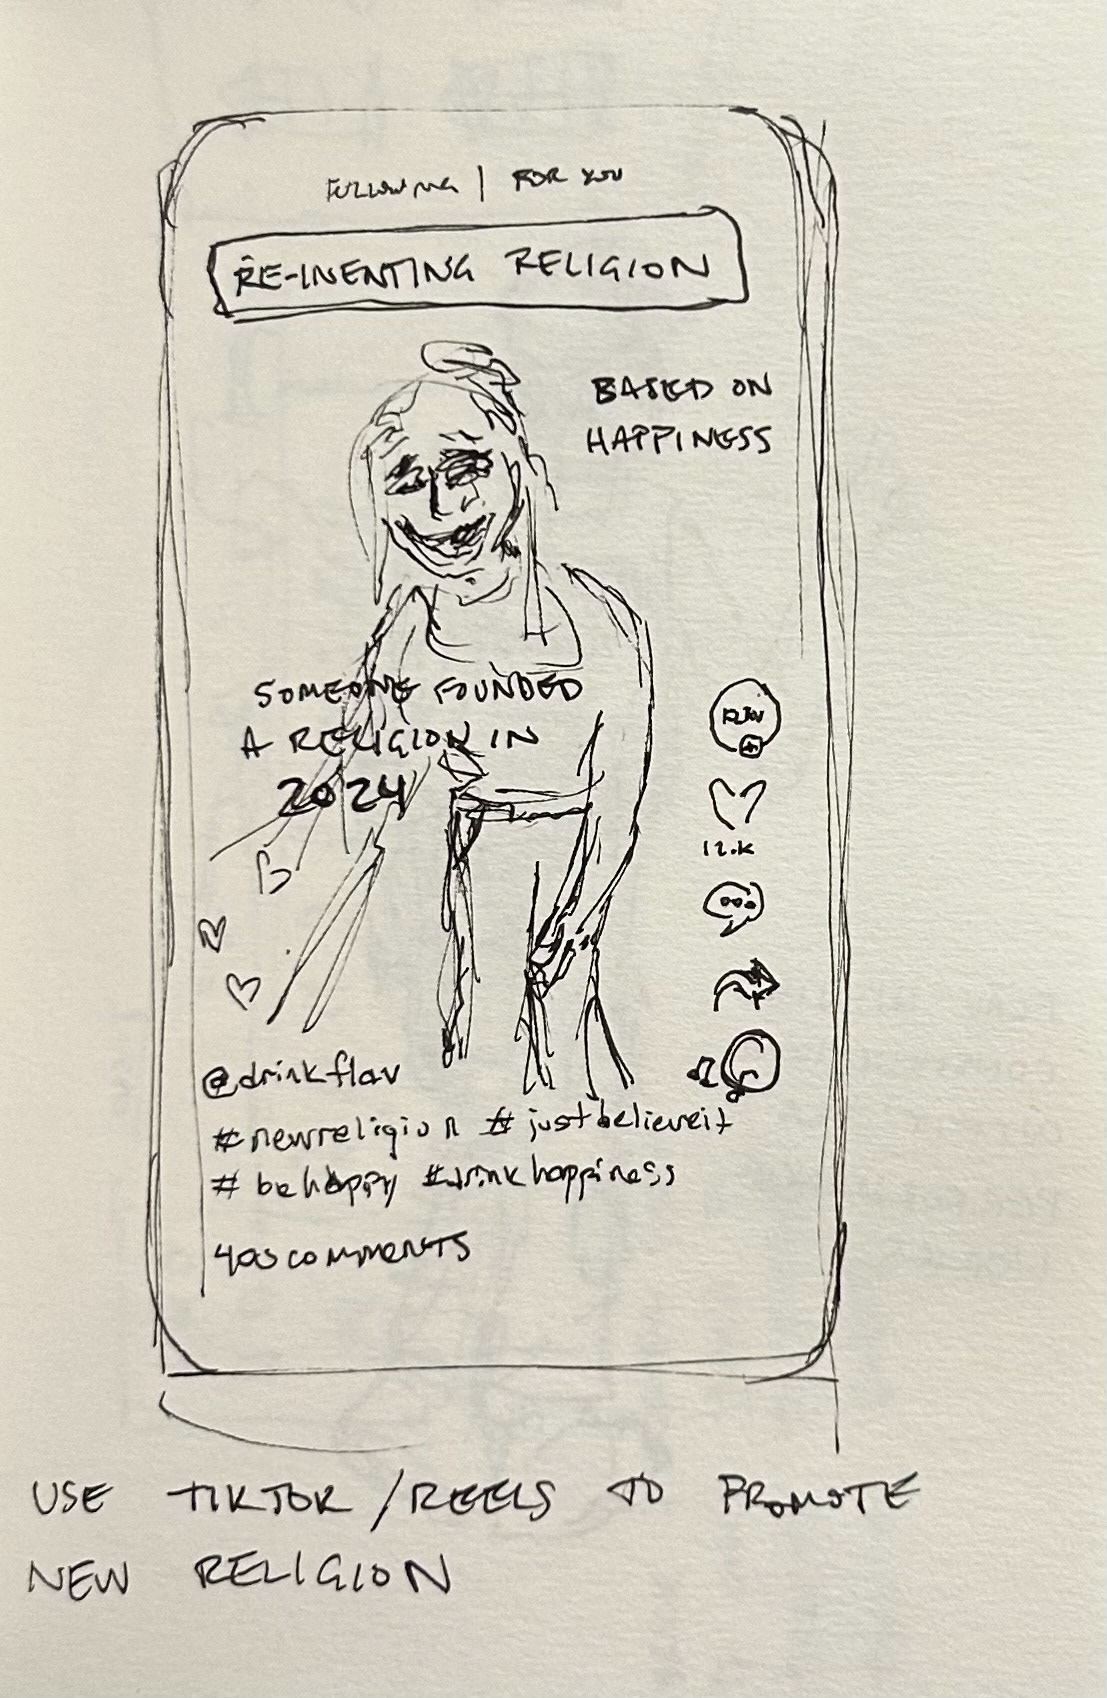 FOLLOWING | FOR YOU
RE-INENTING RELIGION
BASED ON
HAPPINESS
SOMEONE FOUNDED
A RELIGION IN
2024
FLAV
12.K
@drinkflav
#newreligion #justbelieveit
#behappy #drinkhappiness
400 COMMENTS
USE TIKTOK/REELS TO PROMOTE
NEW RELIGION